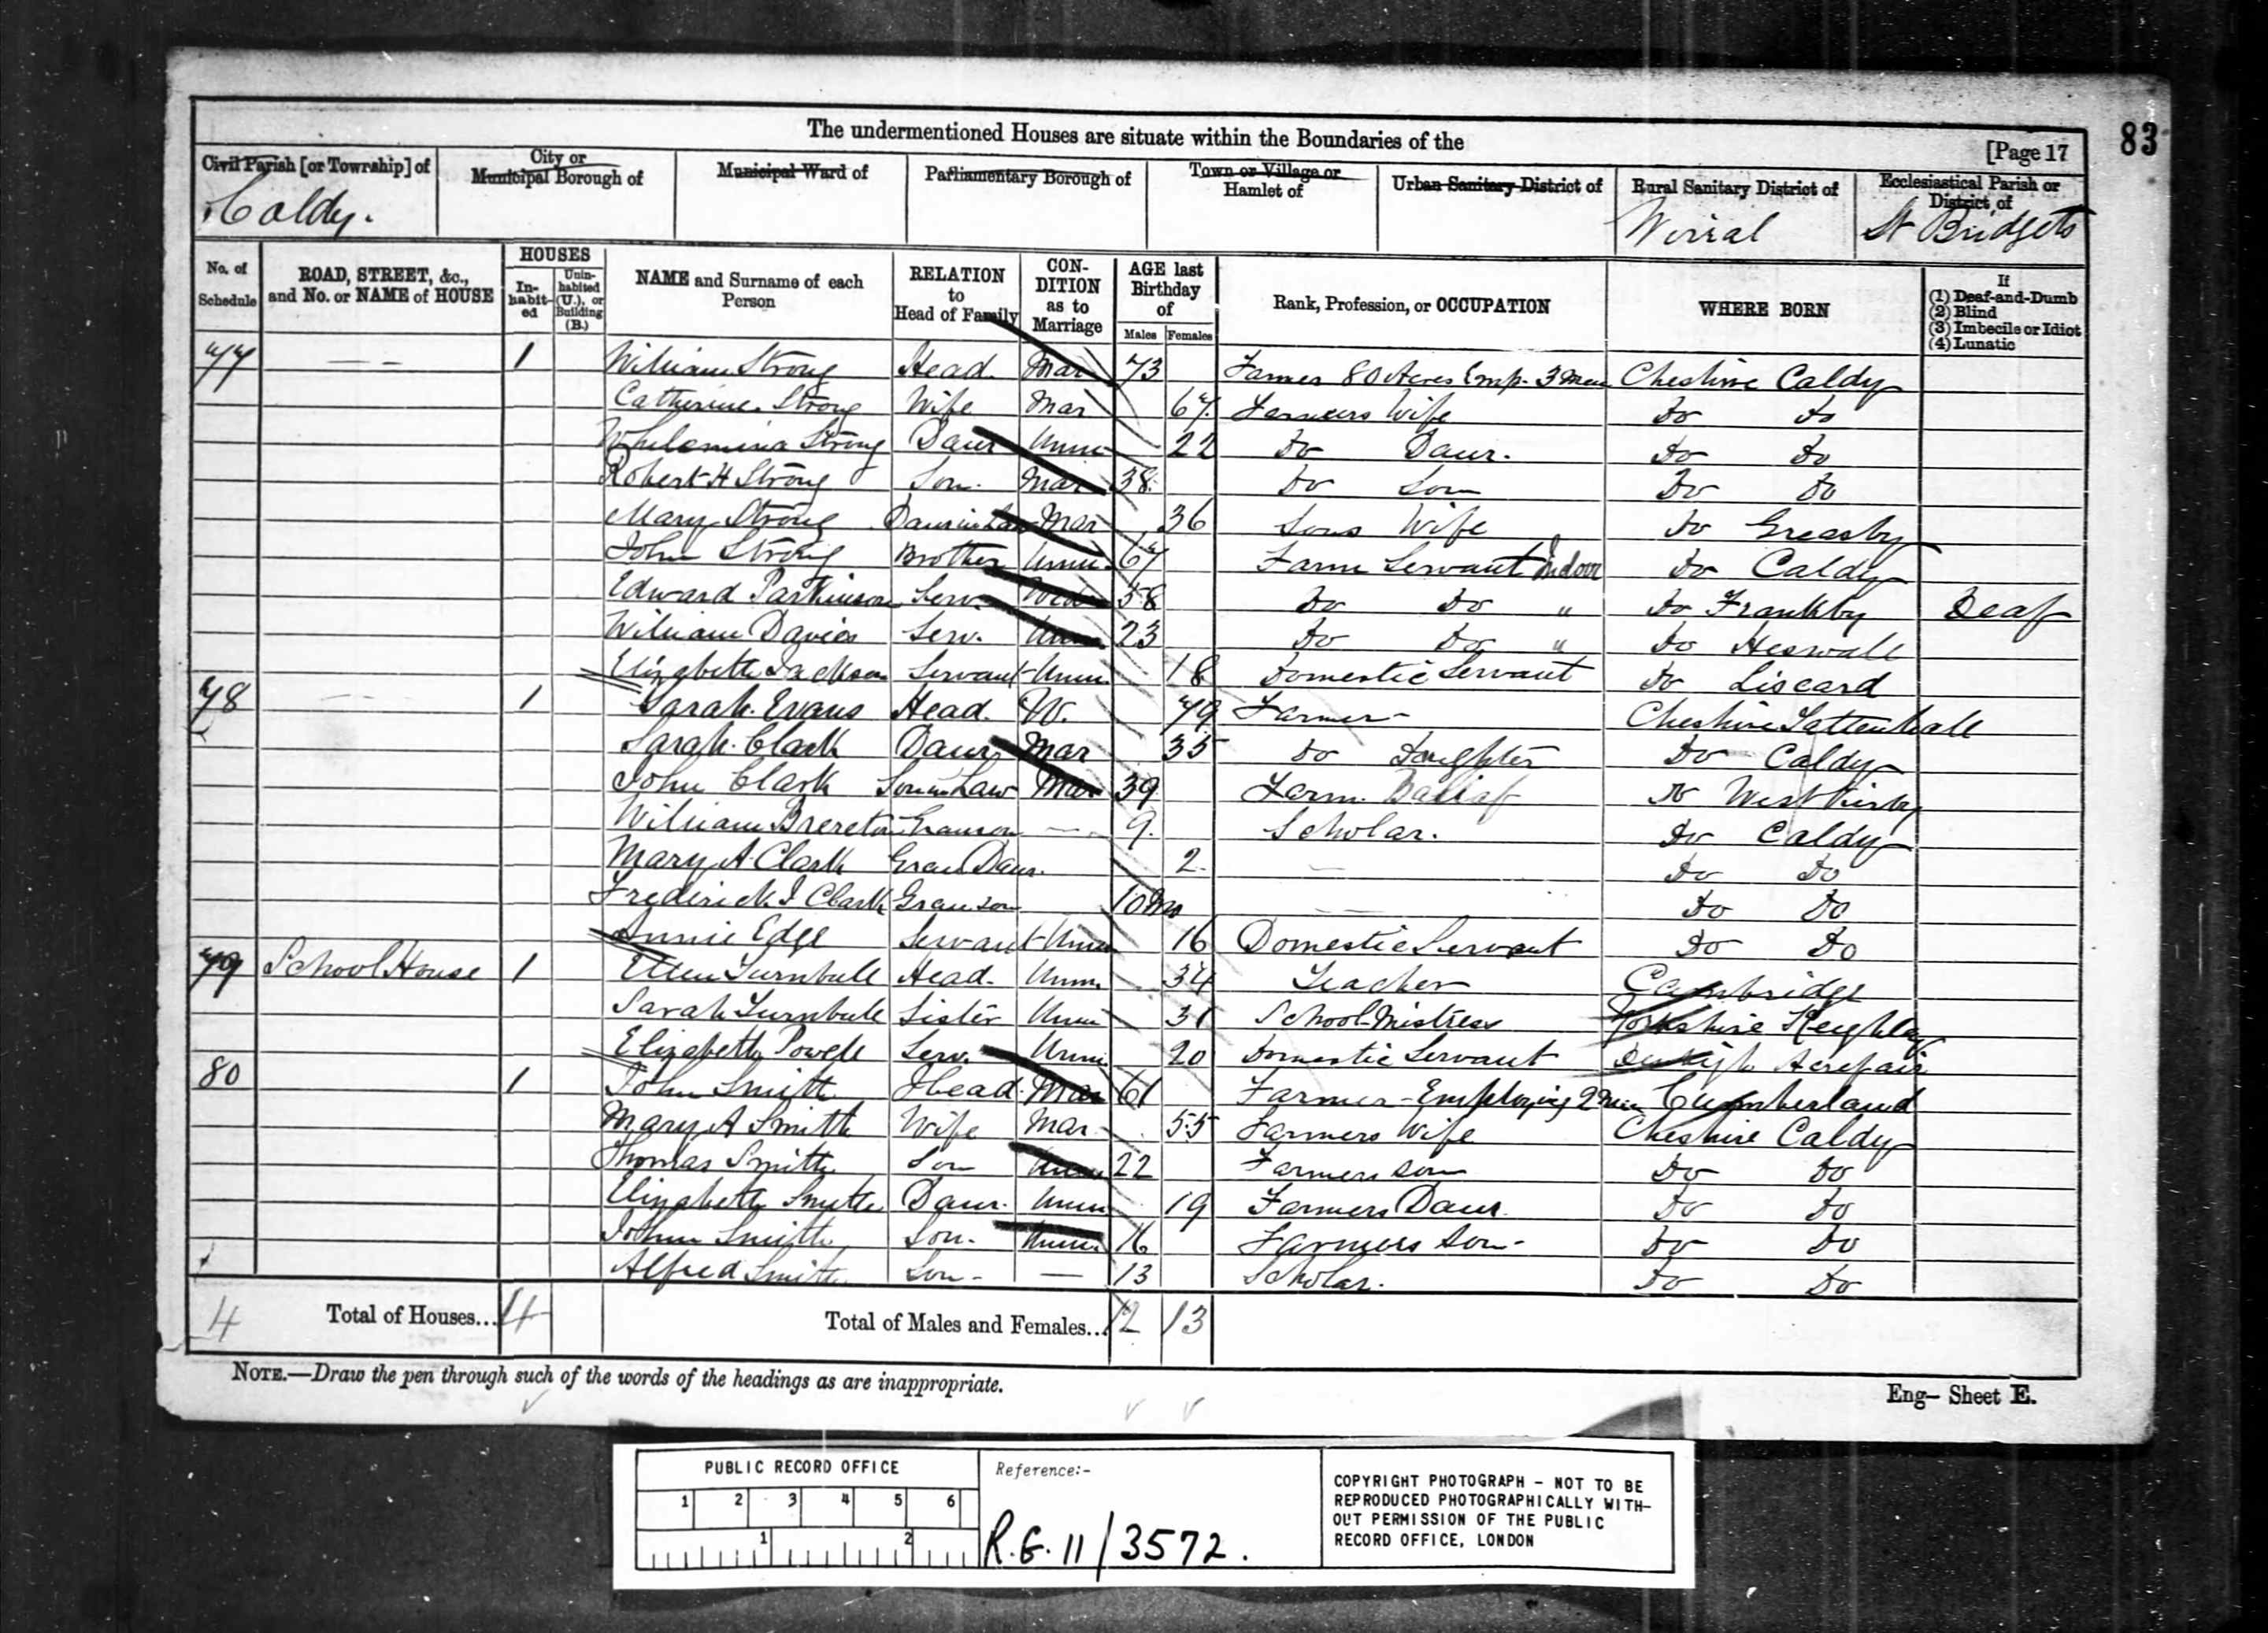 83
The undermentioned Houses are situate within the Boundaries of the
[Page 17
Civil Parish [or Township] of City or Municipal Borough of Municipal Ward of Parliamentary Borough of Town or Village or Hamlet of Urban Sanitary District of Rural Sanitary District of Ecclesiastical Parish or District of
Caldy. Wirral St Bridgets
No. of Schedule ROAD, STREET, &c., and No. or NAME of HOUSE HOUSES In-habit-ed Unin-habited (U.), or Building (B.) NAME and Surname of each Person RELATION to Head of Family CON-DITION as to Marriage AGE last Birthday of Males Females Rank, Profession, or OCCUPATION WHERE BORN If (1) Deaf-and-Dumb (2) Blind (3) Imbecile or Idiot (4) Lunatic
77 — — 1 William Strong Head. Mar 73 Farmer 80 Acres Emp. 3 Men Cheshire Caldy
Catherine Strong Wife Mar 67 Farmers Wife Do Do
Whilemina Strong Daur Unm 22 Do Daur. Do Do
Robert H Strong Son. Mar 38 Do Son Do Do
Mary Strong Daurinlaw Mar 36 Sons Wife Do Greasby
John Strong Brother Unm. 67 Farm Servant Indoor Do Caldy
Edward Parkinson Serv. Wid 58 Do Do " Do Frankby Deaf
William Davies Serv. Unm 23 Do Do " Do Heswall
Elizabeth Jackson Servant Unm 18 Domestic Servant Do Liscard
78 — 1 Sarah Evans Head. W. 79 Farmer Cheshire Tattenhall
Sarah Clark Daur Mar 35 Do Daughter Do Caldy
John Clark Soninlaw Mar 39 Farm Bailiaf Do West Kirby
William Brereton Granson — 9 Scholar. Do Caldy
Mary A Clark Gran Daur. 2 — Do Do
Frederick J Clark Granson 10 Mo — Do Do
Annie Edge Servant Unm 16 Domestic Servant Do Do
79 School House 1 Ellen Turnbull Head. Unm. 34 Teacher Cambridge
Sarah Turnbull Sister Unm 31 School Mistress Yorkshire Keighley
Elizabeth Powell Serv. Unm. 20 Domestic Servant Denbigh Acrefair
80 1 John Smith Head. Mar 61 Farmer - Employing 2 Men Cumberland
Mary A Smith Wife Mar 55 Farmers Wife Cheshire Caldy
Thomas Smith Son Unm 22 Farmers Son Do Do
Elizabeth Smith Daur. Unm 19 Farmers Daur. Do Do
John Smith Son. Unm 16 Farmers Son Do Do
Alfred Smith Son — 13 Scholar. Do Do
4 Total of Houses... 4 Total of Males and Females... 12 13
NOTE.—Draw the pen through such of the words of the headings as are inappropriate.
Eng— Sheet E.
PUBLIC RECORD OFFICE
1 2 3 4 5 6
1 2
Reference:-
R.G. 11/3572.
COPYRIGHT PHOTOGRAPH - NOT TO BE
REPRODUCED PHOTOGRAPHICALLY WITH-
OUT PERMISSION OF THE PUBLIC
RECORD OFFICE, LONDON